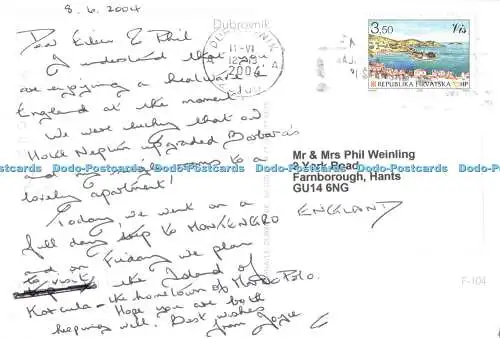 8.6.2004
Dear Eileen & Phil
I understand that you
are enjoying a heatwave in
England at the moment.
We were lucky that our
Hotel Neptun upgraded Barbara's
and my single rooms to a
lovely apartment!
Today, we went on a
full day trip to MONTENEGRO
and on Friday we plan
to visit the Island of
Korcula - the hometown of Marco Polo.
Hope you are both
keeping well. Best wishes
from Joyce
Dubrovnik
DUBROVNIK
11-VI
2004
3,50
Vis
REPUBLIKA HRVATSKA HP
Mr & Mrs Phil Weinling
3 York Road
Farnborough, Hants
GU14 6NG
ENGLAND
F-104
Dodo-Postcards Dodo-Postcards Dodo-Postcards Dodo-Postcards